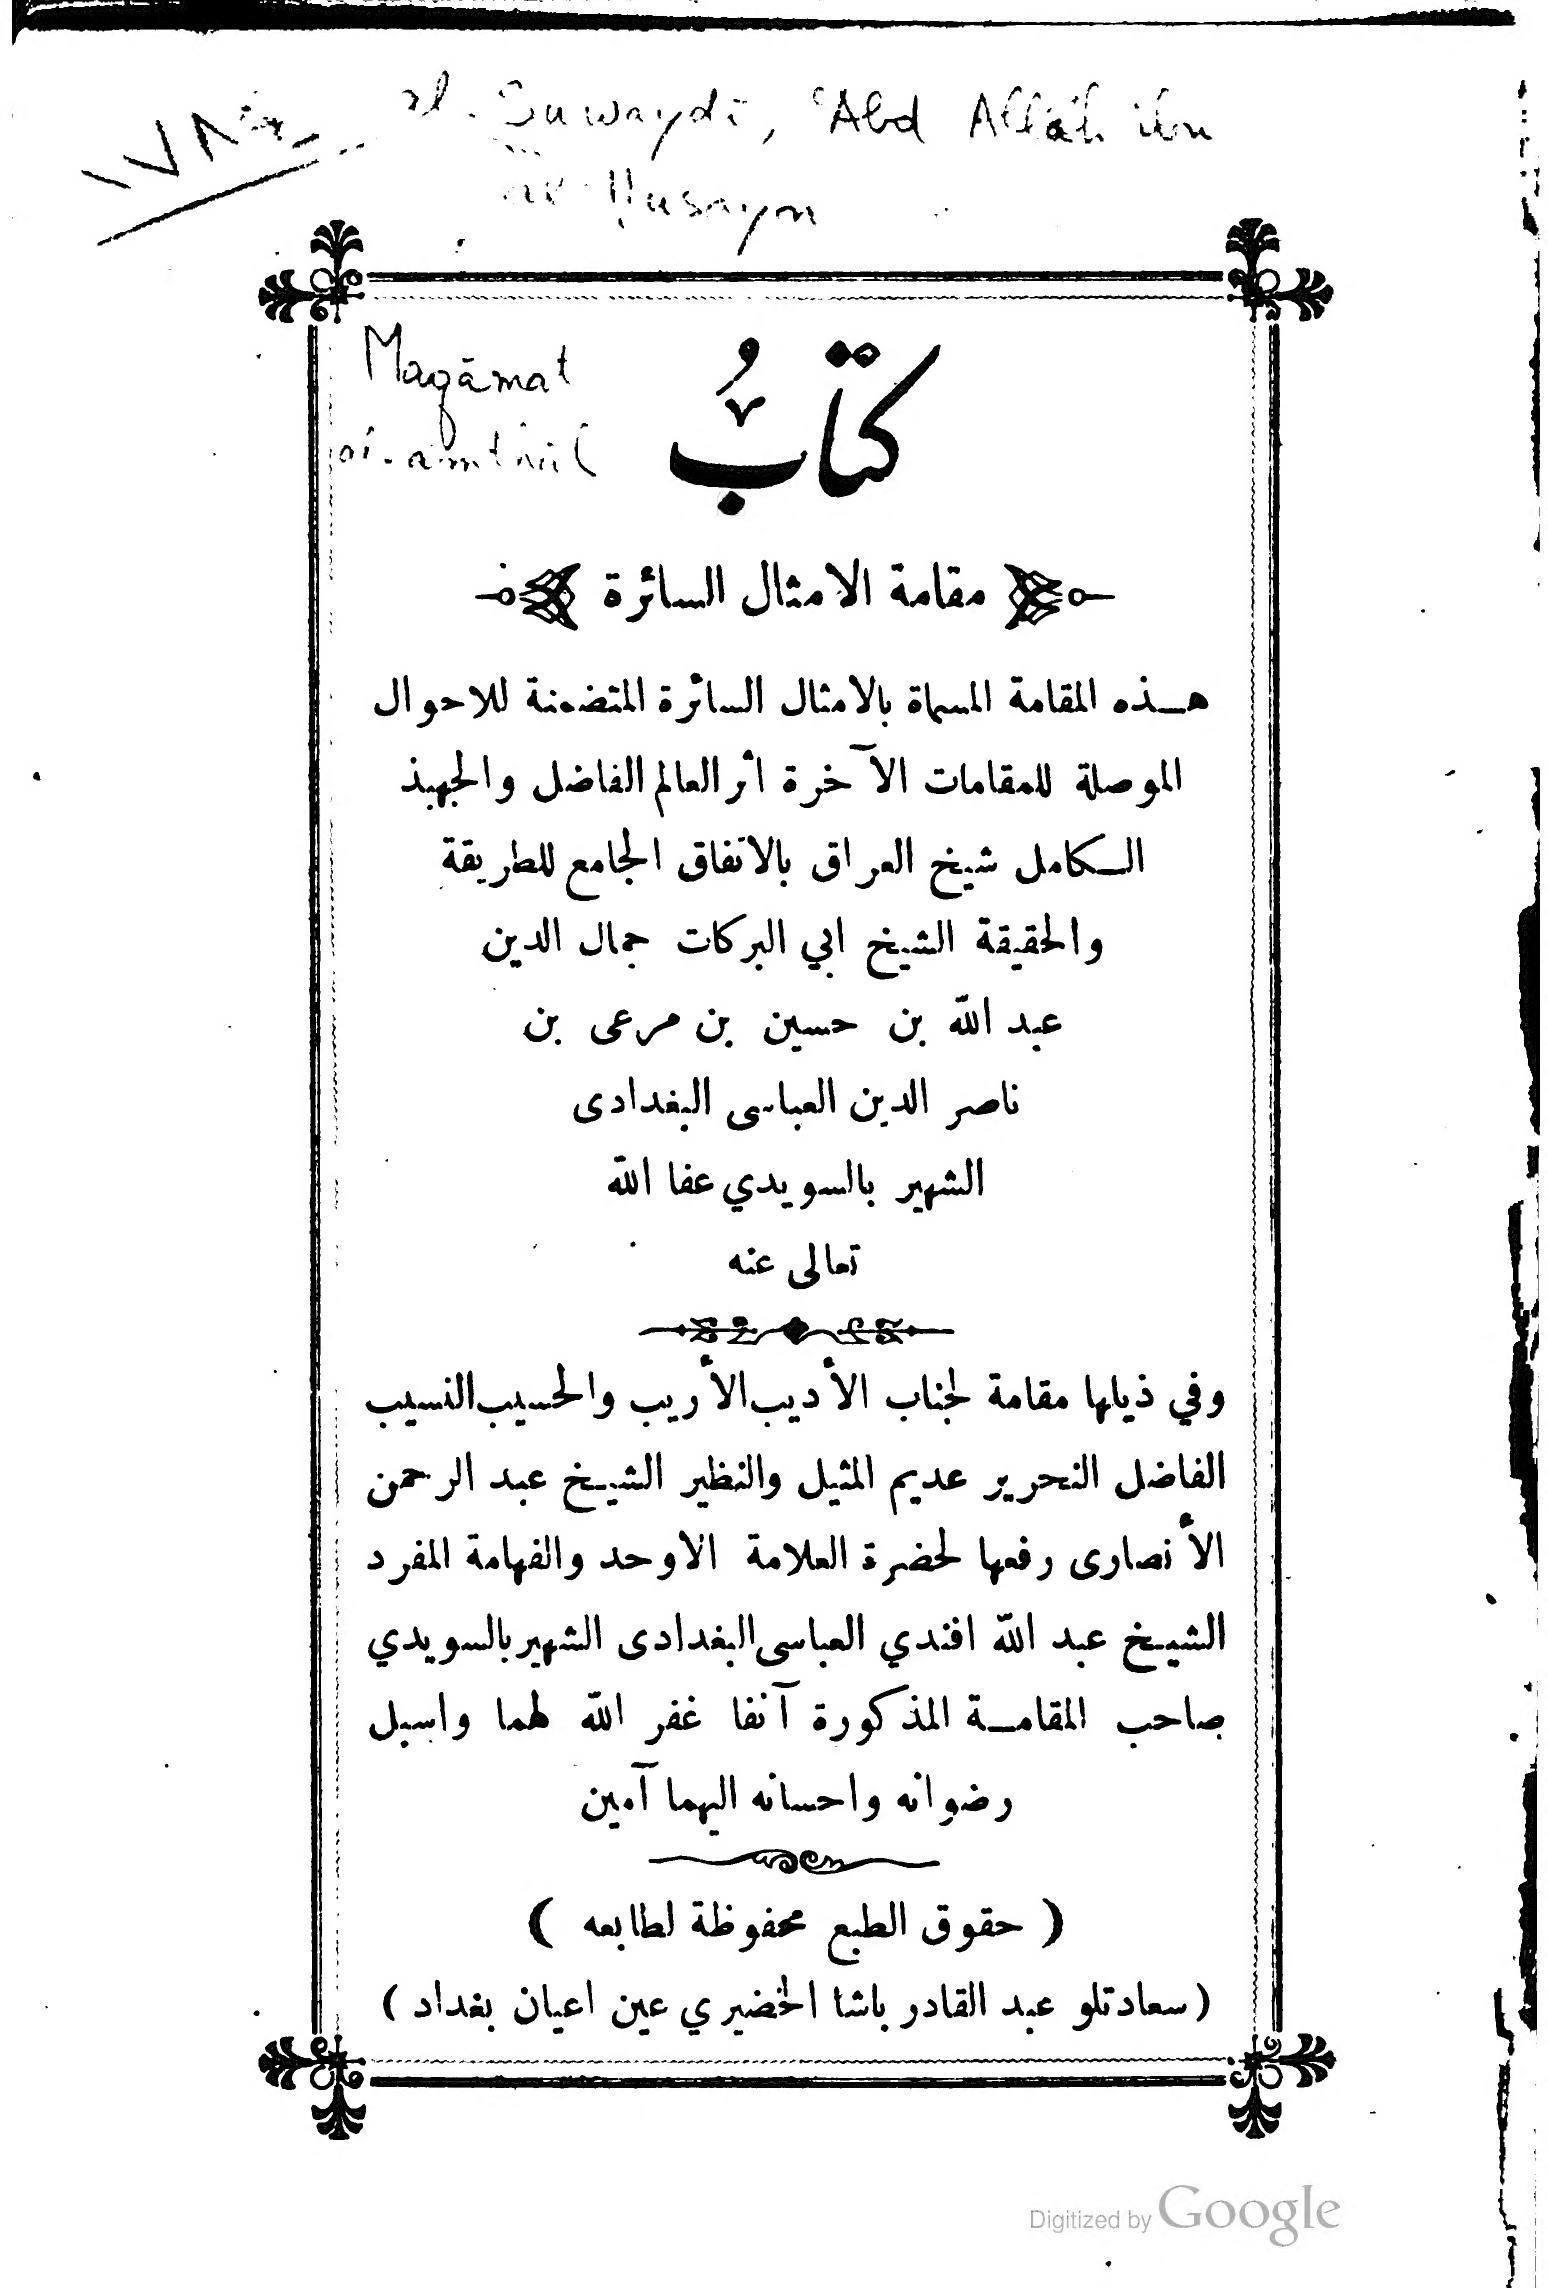 al-Suwaydī, ʿAbd Allāh ibn
al-Ḥusayn
Maqāmat
al-amthāl
كتابُ
مقامة الامثال السائرة
هـذه المقامة المسماة بالامثال السائرة المتضمنة للاحوال
الموصلة للمقامات الآخرة اثر العالم الفاضل والجهبذ
الـكامل شيخ العراق بالاتفاق الجامع للطريقة
والحقيقة الشيخ ابي البركات جمال الدين
عبد اللّه بن حسين بن مرعى بن
ناصر الدين العباسى البغدادى
الشهير بالسويدي عفا اللّه
تعالى عنه
وفي ذيلها مقامة لجناب الأديب الأريب والحسيب النسيب
الفاضل النحرير عديم المثيل والنظير الشيخ عبد الرحمن
الأنصارى رفعها لحضرة العلامة الاوحد والفهامة المفرد
الشيخ عبد اللّه افندي العباسى البغدادى الشهير بالسويدي
صاحب المقامـة المذكورة آنفا غفر اللّه لهما واسبل
رضوانه واحسانه اليهما آمين
( حقوق الطبع محفوظة لطابعه )
( سعادتلو عبد القادر باشا الخضيري عين اعيان بغداد )
Digitized by Google